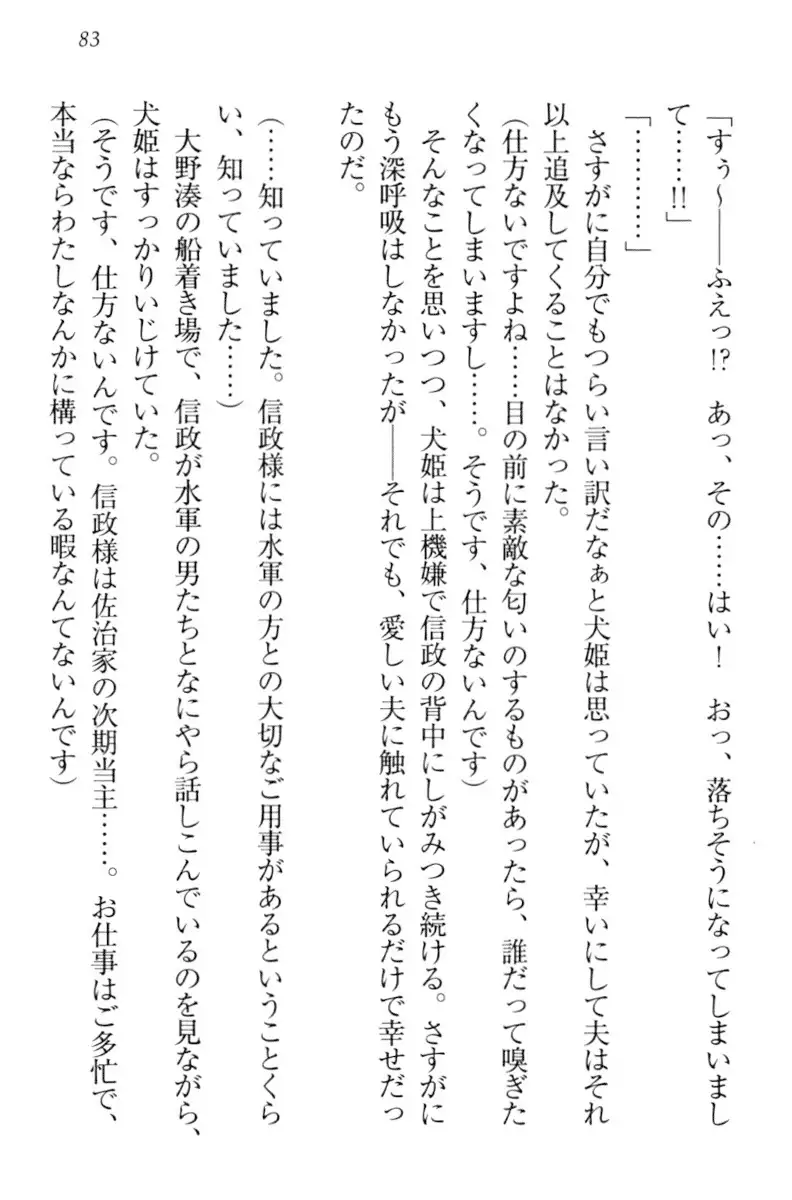 83
「すぅ〜――ふえっ!?　あっ、その……はい！　おっ、落ちそうになってしまいまし
て……!!」
「…………」
さすがに自分でもつらい言い訳だなぁと犬姫は思っていたが、幸いにして夫はそれ
以上追及してくることはなかった。
（仕方ないですよね……目の前に素敵な匂いのするものがあったら、誰だって嗅ぎた
くなってしまいますし……。そうです、仕方ないんです）
そんなことを思いつつ、犬姫は上機嫌で信政の背中にしがみつき続ける。さすがに
もう深呼吸はしなかったが――それでも、愛しい夫に触れていられるだけで幸せだっ
たのだ。
（……知っていました。信政様には水軍の方との大切なご用事があるということくら
い、知っていました……）
大野湊の船着き場で、信政が水軍の男たちとなにやら話しこんでいるのを見ながら、
犬姫はすっかりいじけていた。
（そうです、仕方ないんです。信政様は佐治家の次期当主……。お仕事はご多忙で、
本当ならわたしなんかに構っている暇なんてないんです）